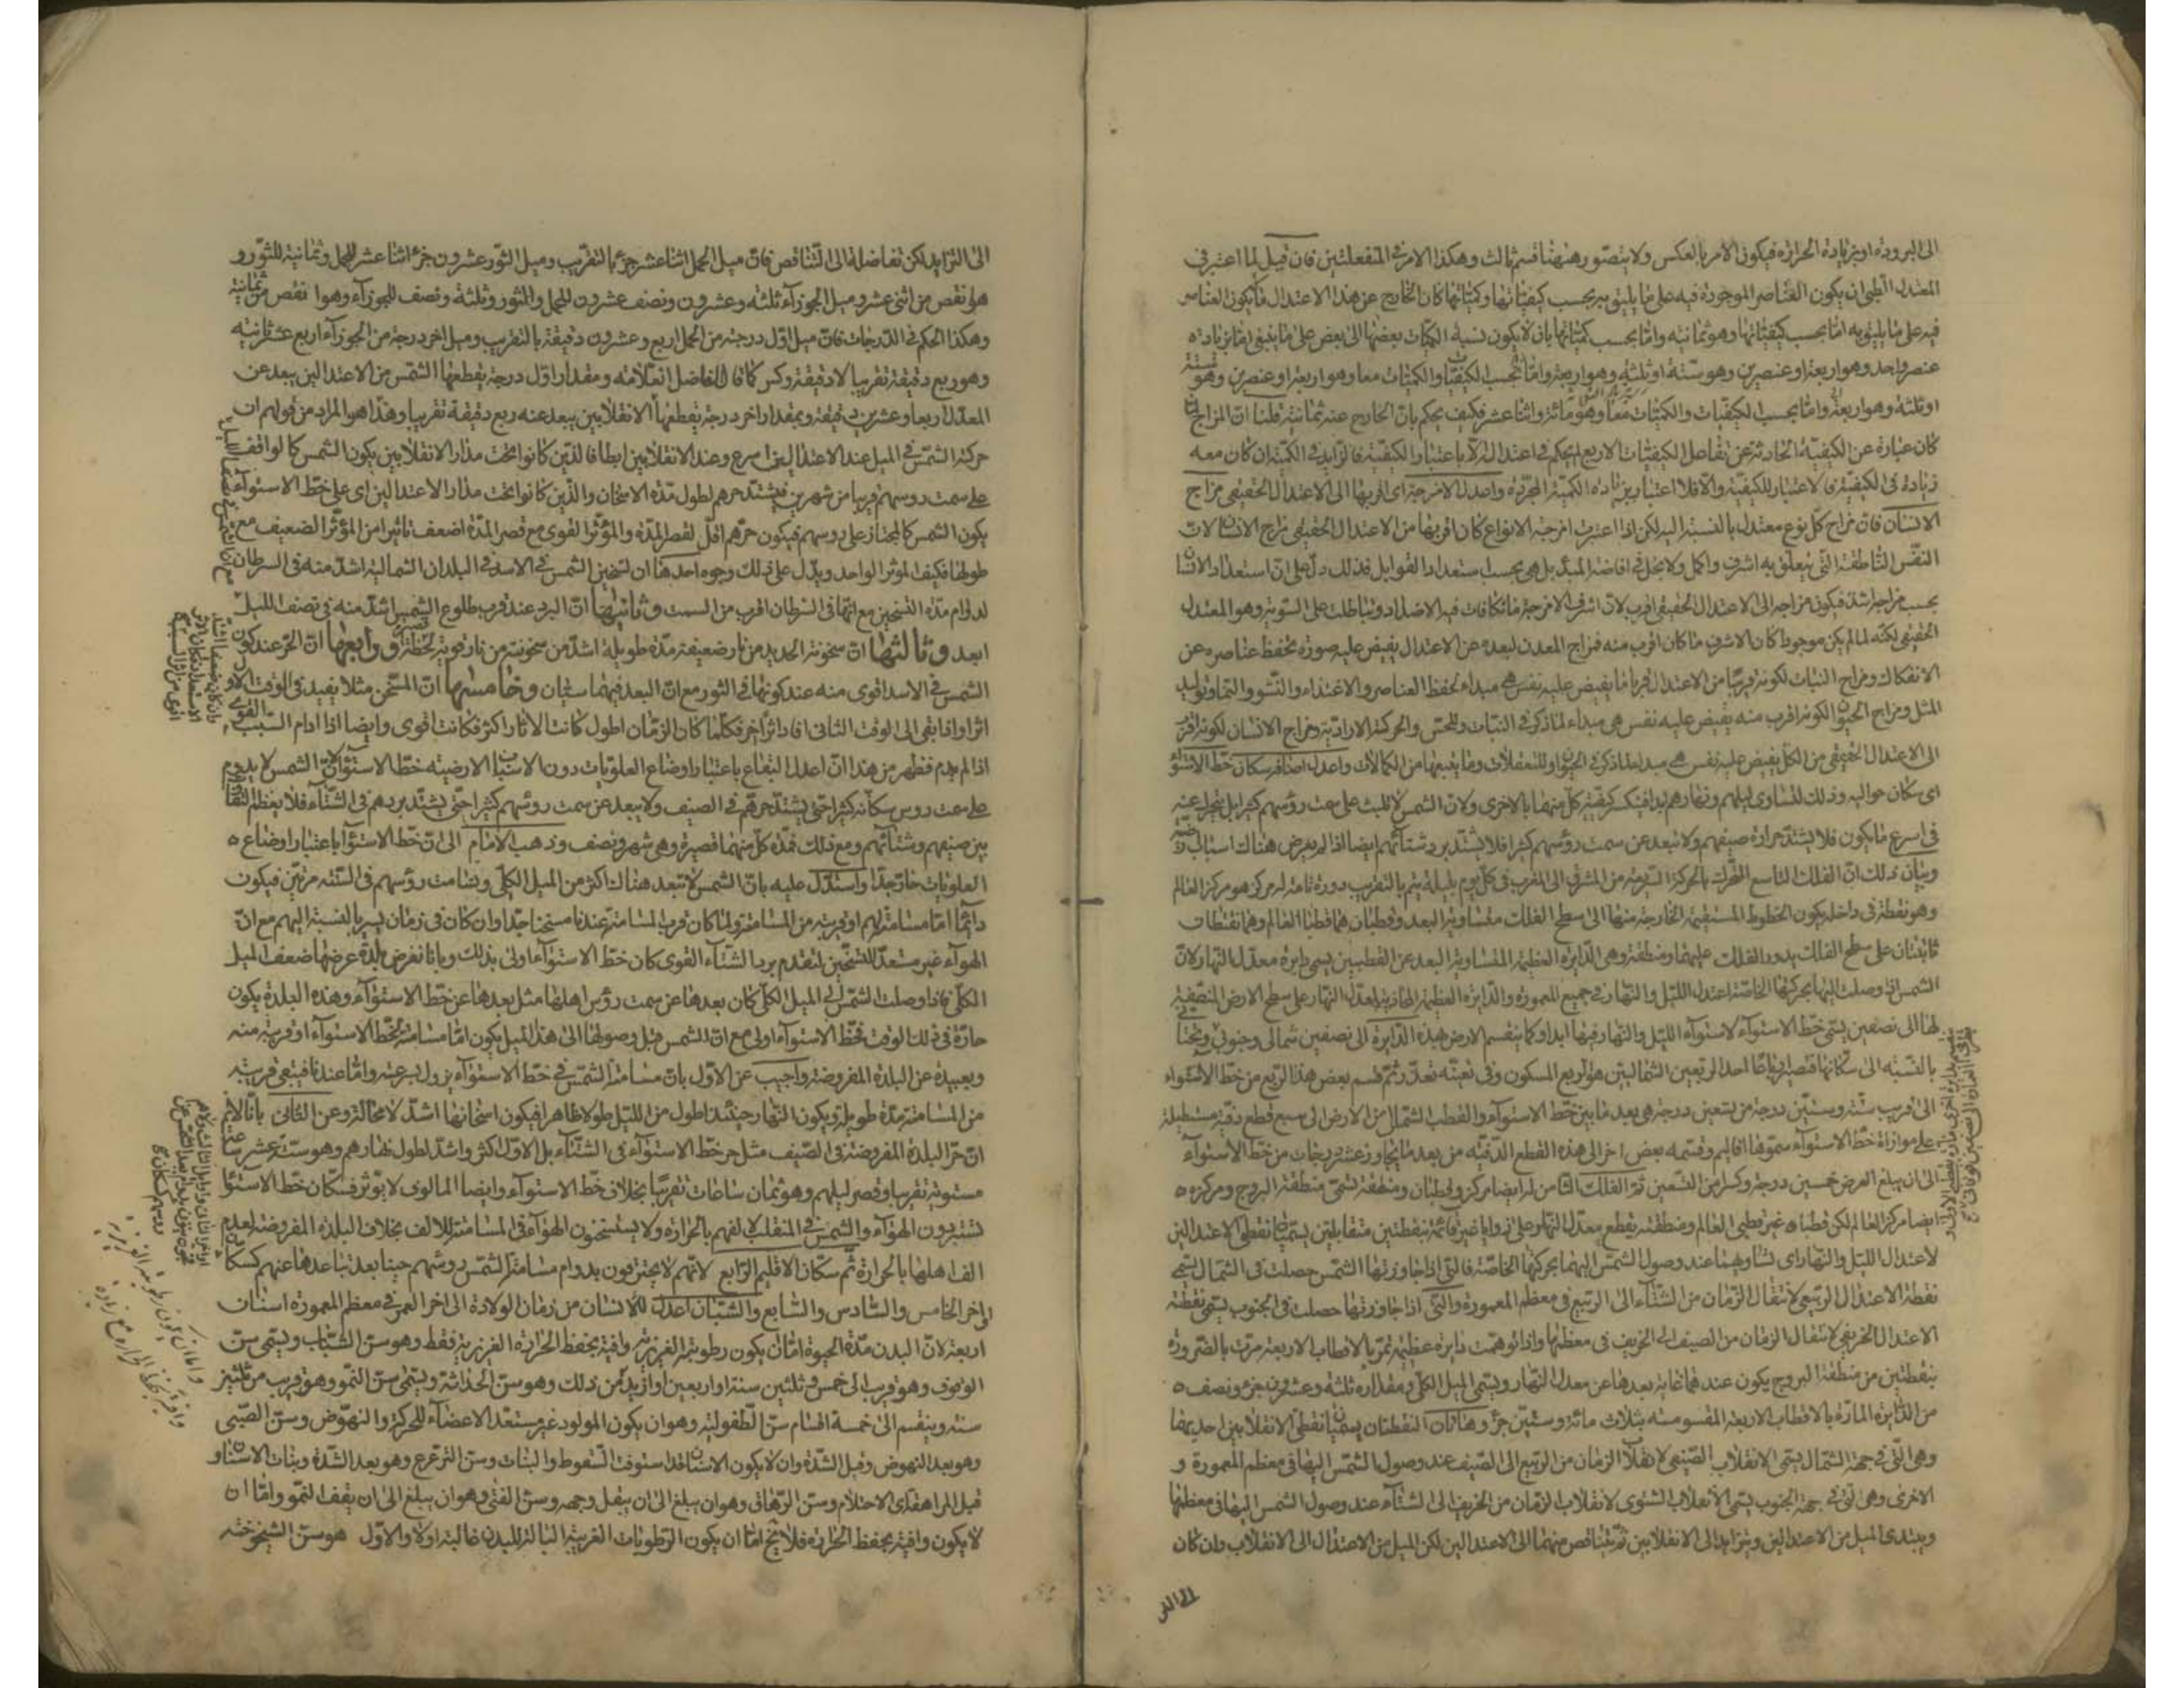 الى البرودة او بزيادة الحرارة فيكون الامر بالعكس ولا يتصور ههنا قسم ثالث وهكذا الامر فى المنفعلتين فان قيل لما اعتبر فى
المعتدل الطبى ان يكون العناصر الموجودة فيه على ما يليق به بحسب كيفياتها وكمياتها كان الخارج عن هذا الاعتدال ما يكون العناصر
فيه على ما يليق به اما بحسب كيفياتها وهو ثمانية واما بحسب كمياتها بان لا يكون نسبة الكميات بعضها الى بعض على ما ينبغى اما بزيادة
عنصر واحد وهو اربعة او عنصرين وهو ستة او ثلثة وهو اربعة واما بحسب الكيفيات والكميات معا وهو اربعة او عنصرين وهو ستة
او ثلثة وهو اربعة واما بحسب الكيفيات والكميات معا وهو مائة واثنا عشر فكيف يحكم بان الخارج عنه ثمانية قلنا ان المزاج لما
كان عبارة عن الكيفية الحادثة عن تفاعل الكيفيات الاربع لم يحكم فى اعتداله الا باعتبار الكيفية فالزايد فى الكمية ان كان معه
زيادة فى الكيفية فالاعتبار للكيفية والا فلا اعتبار بزيادة الكمية المجردة واعدل الامزجة اى اقربها الى الاعتدال الحقيقى مزاج
الانسان فان مزاج كل نوع معتدل بالنسبة اليه لكن اذا اعتبرت امزجة الانواع كان اقربها من الاعتدال الحقيقى مزاج الانسان لان
النفس الناطقة التى يتعلق به اشرف واكمل ولا بخل فى افاضة المبدء بل هى بحسب استعداد القوابل فذلك دل على ان استعداد الانسان
بحسب مزاجه اشد فيكون مزاجه الى الاعتدال الحقيقى اقرب لان اشرف الامزجة ما تكافات فيه الاضداد وتباطلت على السوية وهو المعتدل
الحقيقى لكنه لما لم يكن موجودا كان الاشرف ما كان اقرب منه فمزاج المعدن لبعده عن الاعتدال يفيض عليه صورة تحفظ عناصره عن
الانفكاك ومزاج النبات لكونه قريبا من الاعتدال قربا ما يفيض عليه نفس هى مبداء لحفظ العناصر والاغتذاء والنشو والنما وتوليد
المثل ومزاج الحيوان لكونه اقرب منه يفيض عليه نفس هى مبداء لما ذكر فى النبات وللحس والحركة الارادية ومزاج الانسان لكونه اقرب
الى الاعتدال الحقيقى من الكل يفيض عليه نفس هى مبداء لما ذكر فى الحيوان وللتعقلات وما يتبعها من الكمالات واعدل اصنافه سكان خط الاستواء
اى سكان حواليه وذلك لتساوى ليلهم ونهارهم ابدا فتنكسر كيفية كل منهما بالاخرى ولان الشمس لا تلبث على سمت رؤسهم كثيرا بل تتحرك عنه
فى اسرع ما يكون فلا يشتد حرارة صيفهم ولا تبعد عن سمت رؤسهم كثيرا فلا يشتد برد شتائهم ايضا اذا لم يعرض هناك اسباب
وبيان ذلك ان الفلك التاسع المتحرك بالحركة السريعة من المشرق الى المغرب فى كل يوم بليلة يتم بالتقريب دورة تامة له مركز هو مركز العالم
وهو نقطة فى داخله يكون الخطوط المستقيمة الخارجة منها الى سطح الفلك متساوية البعد وقطبان هما قطبا العالم وهما نقطتان
ثابتتان على سطح الفلك يدور الفلك عليهما ومنطقة وهى الدايرة العظيمة المتساوية البعد عن القطبين يسمى دايرة معدل النهار لان
الشمس اذا وصلت اليها بحركتها الخاصة اعتدل الليل والنهار فى جميع المعمورة والدايرة العظيمة المحاذية لمعدل النهار على سطح الارض المنصفة
لها الى نصفين يسمى خط الاستواء لاستواء الليل والنهار فيها ابدا وكما ينقسم الارض بهذه الدايرة الى نصفين شمالى وجنوبى
بالنسبة الى سكانها فتصير ارباعا احد الربعين الشماليين هو الربع المسكون وفى تعيينه تعذر ثم قسم بعض هذا الربع من خط الاستواء
الى قريب ستة وستين درجة من تسعين درجة هى بعد ما بين خط الاستواء والقطب الشمالى من الارض الى سبع قطع دقيقة مستطيلة
على موازاة خط الاستواء سموها اقاليم وقسمه بعض اخر الى هذه القطع الدقيقة من بعد ما يجاوز عشر درجات من خط الاستواء
الى ان يبلغ العرض خمسين درجة وكسرا من التسعين ثم الفلك الثامن له ايضا مركز وقطبان ومنطقة تسمى منطقة البروج ومركزه
ايضا مركز العالم لكن قطباه غير قطبى العالم ومنطقته يقطع معدل النهار على زوايا غير قائمة بنقطتين متقابلتين يسميان نقطتى الاعتدالين
لاعتدال الليل والنهار اى تساويهما عند وصول الشمس اليهما بحركتها الخاصة فالتى اذا جاوزتها الشمس حصلت فى الشمال يسمى
نقطة الاعتدال الربيعى لانتقال الزمان من الشتاء الى الربيع فى معظم المعمورة والتى اذا جاوزتها حصلت فى الجنوب يسمى نقطة
الاعتدال الخريفى لانتقال الزمان من الصيف الى الخريف فى معظمها واذا توهمت دايرة عظيمة تمر بالاقطاب الاربعة مرت بالضرورة
بنقطتين من منطقة البروج يكون عندهما غاية بعدها عن معدل النهار ويسمى الميل الكلى ومقداره ثلثة وعشرون جزء ونصف
من الدايرة المارة بالاقطاب الاربعة المقسومة بثلاث مائة وستين جزءا وهاتان النقطتان يسميان نقطتى الانقلابين احديهما
وهى التى فى جهة الشمال يسمى الانقلاب الصيفى لانقلاب الزمان من الربيع الى الصيف عند وصول الشمس اليها فى معظم المعمورة و
الاخرى وهى التى فى جهة الجنوب يسمى الانقلاب الشتوى لانقلاب الزمان من الخريف الى الشتاء عند وصول الشمس اليها فى معظمها
ويبتدى الميل من الاعتدالين ويتزايد الى الانقلابين ثم يتناقص منهما الى الاعتدالين لكن الميل من الاعتدال الى الانقلاب وان كان
الى التزايد لكن تفاضله الى التناقص فان ميل الحمل اثنا عشر جزءا بالتقريب وميل الثور عشرون جزء اثنا عشر للحمل وثمانية للثور و
هو انقص من اثنى عشر وميل الجوزاء ثلثة وعشرون ونصف عشرون للحمل والثور وثلثة ونصف للجوزاء وهو انقص من ثمانية
وهكذا الحكم فى الدرجات فان ميل اول درجة من الحمل اربع وعشرون دقيقة بالتقريب وميل اخر درجة من الجوزاء اربع عشر ثانية
وهو ربع دقيقة تقريبا لا دقيقة وكسر كما قال الفاضل العلامه ومقدار اول درجة يقطعها الشمس من الاعتدالين يبعد عن
المعدل اربعا وعشرين دقيقة ومقدار اخر درجة يقطعها الانقلابين يبعد عنه ربع دقيقة تقريبا وهذا هو المراد من قولهم ان
حركة الشمس فى الميل عند الاعتدالين اسرع وعند الانقلابين ابطا فالذين كانوا تحت مدار الانقلابين يكون الشمس كالواقف
على سمت روسهم قريبا من شهرين فيشتد حرهم لطول مدة الاسخان والذين كانوا تحت مدار الاعتدالين اى على خط الاستواء
يكون الشمس كالمجتاز على روسهم فيكون حرهم اقل لقصر المدة والمؤثر القوى مع قصر المدة اضعف تاثيرا من المؤثر الضعيف مع
طولها فكيف الموثر الواحد ويدل على ذلك وجوه احدها ان تسخين الشمس فى الاسد فى البلدان الشمالية اشد منه فى السرطان
لدوام مدة التسخين مع انها فى السرطان اقرب من السمت وثانيها ان البرد عند قرب طلوع الشمس اشد منه فى نصف الليل
ابعد وثالثها ان سخونة الحديد من نار ضعيفة مدة طويلة اشد من سخونته من نار قوية لحظة ورابعها ان الحر عند كون
الشمس فى الاسد اقوى منه عند كونها فى الثور مع ان البعد فيهما سيان وخامسها ان المسخن مثلا يفيد فى الوقت الاول
اثرا واذا بقى الى الوقت الثانى افاد اثرا اخر فكلما كان الزمان اطول كانت الاثار اكثر فكانت اقوى وايضا اذا دام السبب القوى
اذا لم يدم فظهر من هذا ان اعدل البقاع باعتبار اوضاع العلويات دون الاسباب الارضية خط الاستواء لان الشمس لا يدوم
على سمت روس سكانه كثيرا حتى يشتد حرهم فى الصيف ولا يبعد عن سمت روسهم كثيرا حتى يشتد بردهم فى الشتاء فلا يعظم التفاوت
بين صيفهم وشتائهم ومع ذلك فمدة كل منهما قصيرة وهى شهر ونصف وذهب الامام الى ان خط الاستواء باعتبار اوضاع
العلويات حار جدا واستدل عليه بان الشمس لا تبعد هناك اكثر من الميل الكلى وتسامت رؤسهم فى السنة مرتين فيكون
دائما اما مسامتة لهم او قريبة من المسامتة ولما كان قرب المسامتة عندنا مسخنا جدا وان كان فى زمان يسير بالنسبة اليهم مع ان
الهواء غير مستعد للتسخين لتقدم برد الشتاء القوى كان خط الاستواء اولى بذلك وبانا نفرض بلدة عرضها ضعف الميل
الكلى فاذا وصلت الشمس الى الميل الكلى كان بعدها عن سمت رؤس اهلها مثل بعدها عن خط الاستواء وهذه البلدة يكون
حارة فى ذلك الوقت فخط الاستواء اولى مع ان الشمس قبل وصولها الى هذا الميل يكون اما مسامتة لخط الاستواء او قريبة منه
وبعيدة عن البلدة المفروضة واجيب عن الاول بان مسامتة الشمس فى خط الاستواء يزول بسرعة واما عندنا فيبقى قريبة
من المسامتة مدة طويلة ويكون النهار حينئذ اطول من الليل طولا ظاهرا فيكون اسخانها اشد لا محالة وعن الثانى بانا لا نم
ان حر البلدة المفروضة فى الصيف مثل حر خط الاستواء فى الشتاء بل الاول اكثر واشد لطول نهارهم وهو ستة عشر ساعة
مستوية تقريبا وقصر ليلهم وهو ثمان ساعات تقريبا بخلاف خط الاستواء وايضا المالوف لا يؤثر فسكان خط الاستواء
يستبردون الهواء والشمس فى المنقلب لالفهم بالحرارة ولا يستسخنون الهواء فى المسامتة للالف بخلاف البلدة المفروضة لعدم
الف اهلها بالحرارة ثم سكان الاقليم الرابع لانهم لا يحترقون بدوام مسامتة الشمس روسهم حينا بعد تباعدها عنهم كسكان
اخر الخامس والسادس والسابع والشبان اعدل للانسان من زمان الولادة الى اخر العمر فى معظم المعمورة اسنان
اربعة لان البدن مدة الحيوة اما ان يكون رطوبته الغريزية وافية بحفظ الحرارة الغريزية فقط وهو سن الشباب ويسمى سن
الوقوف وهو قريب الى خمس وثلثين سنة او اربعين او ازيد من ذلك وهو سن الحداثة ويسمى سن النمو وهو قريب من ثلثين
سنة وينقسم الى خمسة اقسام سن الطفولية وهو ان يكون المولود غير مستعد الاعضاء للحركة والنهوض وسن الصبى
وهو بعد النهوض وقبل الشدة وان لا يكون الاسنان قد استوفت السقوط والنبات وسن الترعرع وهو بعد الشدة ونبات الاسنان و
قبل المراهقة اى الاحتلام وسن الرهاق وهو ان يبلغ الى ان يبقل وجهه وسن الفتى وهو ان يبلغ الى ان يقف النمو واما ان
لا يكون وافية بحفظ الحرارة فلا يخ اما ان يكون الرطوبات الغريبة البالة للبدن غالبة اولا والاول هو سن الشيخوخة